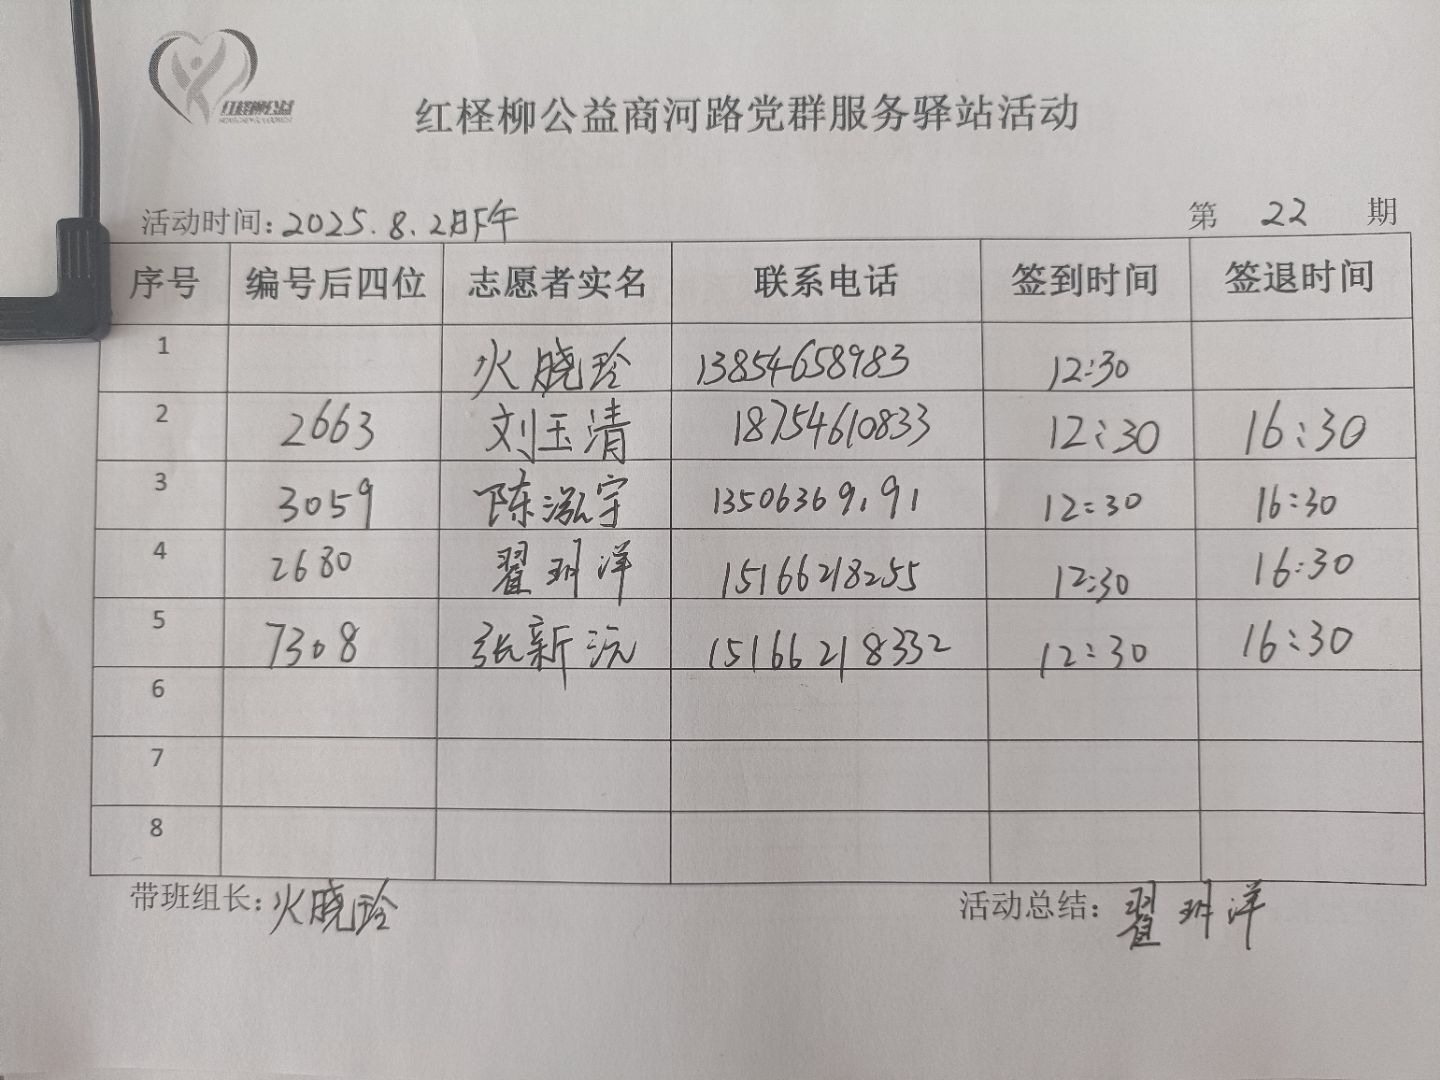 红柽柳公益
红柽柳公益商河路党群服务驿站活动
活动时间：2025.8.2日下午 第 22 期
序号 编号后四位 志愿者实名 联系电话 签到时间 签退时间
1 火晓玲 13854658983 12:30
2 2663 刘玉清 18754610833 12:30 16:30
3 3059 陈泓宇 13506369191 12:30 16:30
4 2680 翟玥洋 15166218255 12:30 16:30
5 7308 张新沅 15166218332 12:30 16:30
6
7
8
带班组长：火晓玲 活动总结：翟玥洋